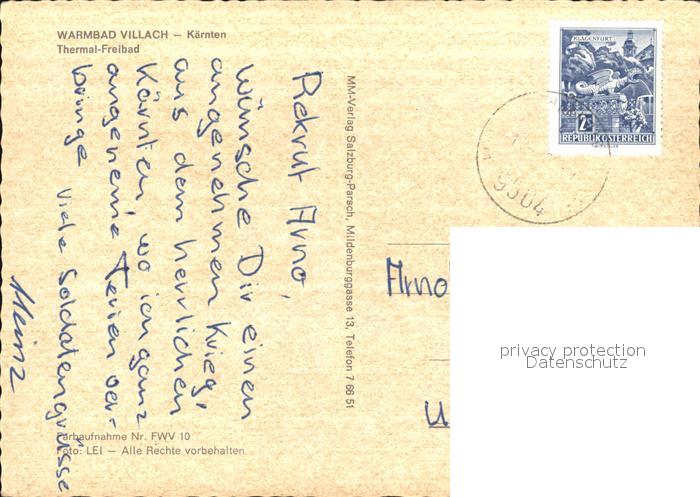 WARMBAD VILLACH — Kärnten
Thermal-Freibad
Rekrut Arno,
wünsche Dir einen
angenehmen Krieg,
aus dem herrlichen
Kärnten, wo ich ganz
angeneme Ferien ver-
bringe
Viele Soldatengrüsse
Heinz
Farbaufnahme Nr. FWV 10
Foto: LEI — Alle Rechte vorbehalten
MM-Verlag Salzburg-Parsch, Mildenburggasse 13, Telefon 7 66 51
KLAGENFURT
2S
REPUBLIK ÖSTERREICH
9504
Arno
U
privacy protection
Datenschutz